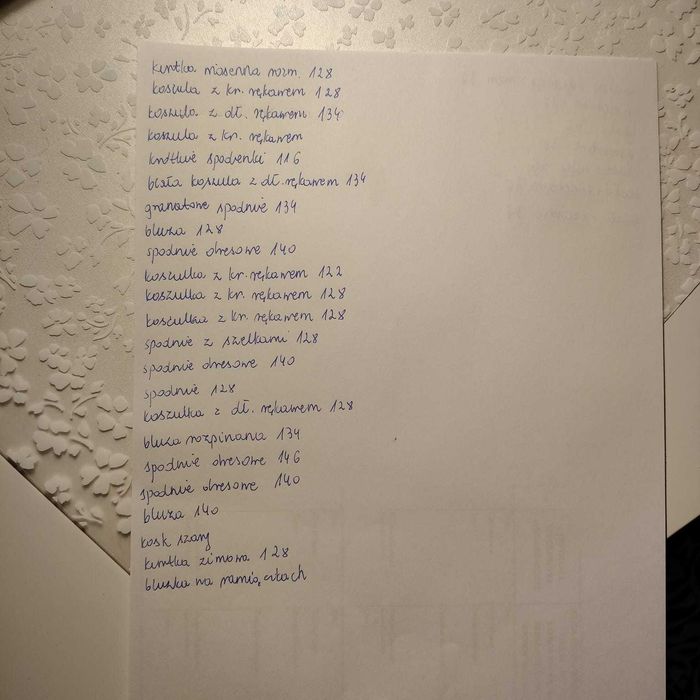 kurtka wiosenna rozm. 128
koszula z kr. rękawem 128
koszula z dł. rękawem 134
koszula z kr. rękawem
krótkie spodenki 116
biała koszula z dł. rękawem 134
granatowe spodnie 134
bluza 128
spodnie dresowe 140
koszulka z kr. rękawem 122
koszulka z kr. rękawem 128
koszulka z kr. rękawem 128
spodnie z szelkami 128
spodnie dresowe 140
spodnie 128
koszulka z dł. rękawem 128
bluza rozpinana 134
spodnie dresowe 146
spodnie dresowe 140
bluza 140
kask szary
kurtka zimowa 128
bluzka na ramiączkach